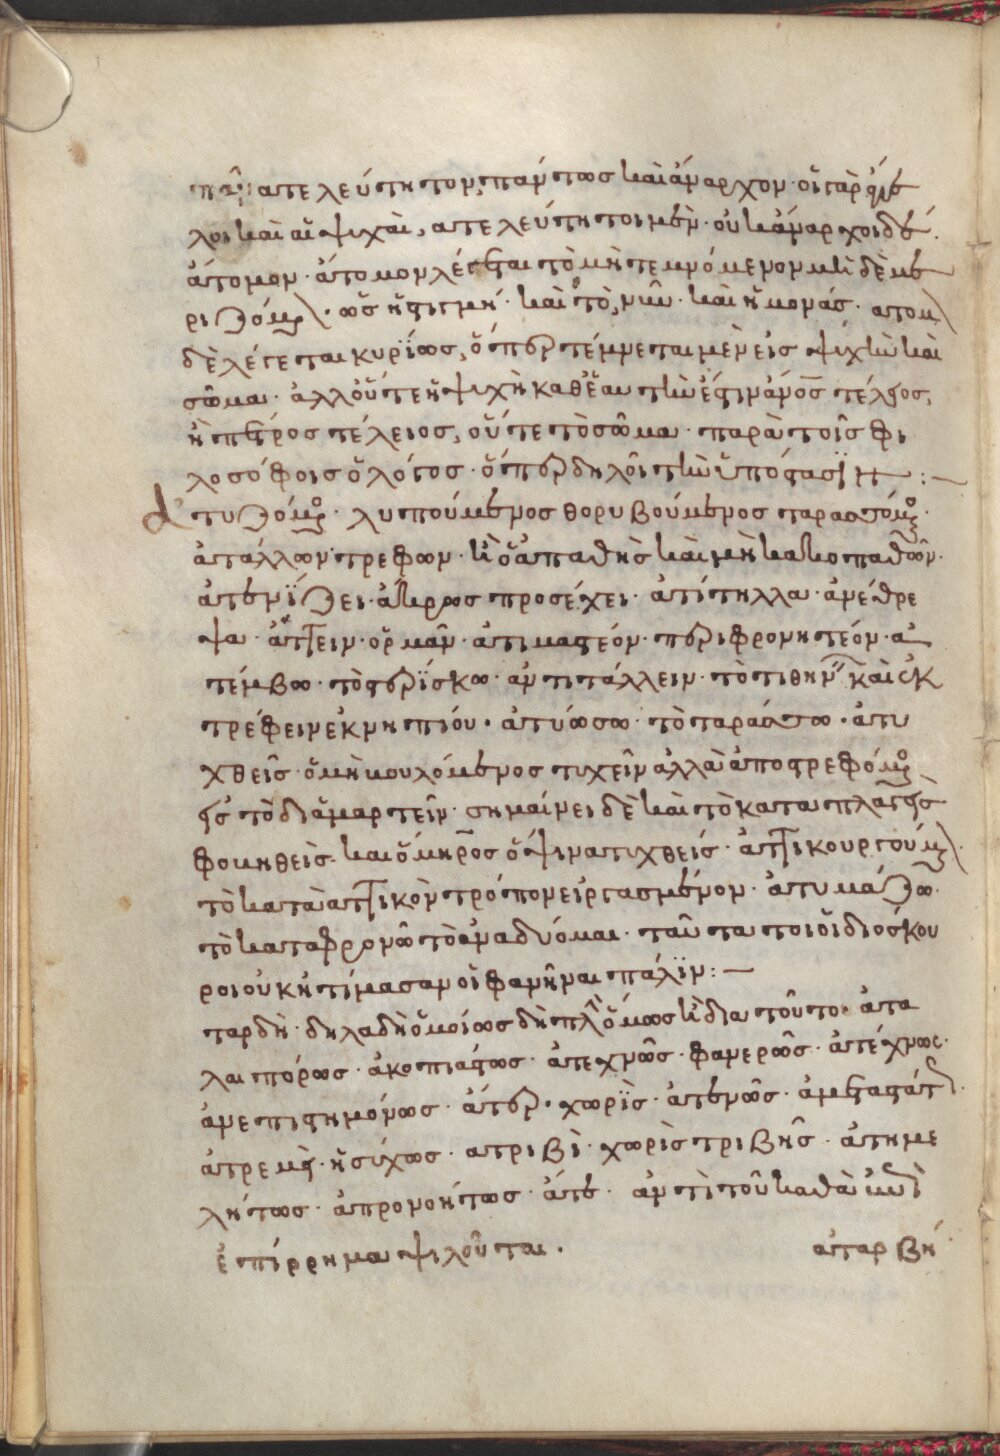 πᾶν ἀτελεύτητον, πάντως καὶ ἄναρχον· οἱ γὰρ ἄγγε
λοι καὶ αἱ ψυχαὶ, ἀτελεύτητοι μὲν· οὐκ ἄναρχοι δέ.
ἄτομον· ἄτομον λέγεται τὸ μὴ τεμνόμενον μὴ δὲ με
ριζόμ · ὡς ἡ στιγμή· καὶ τὸ νῦν· καὶ ἡ μονάς· ατομ
δὲ λέγεται κυρίως, ὅπερ τέμνεται μὲν εἰς ψυχὴν καὶ
σῶμα· ἀλλ οὔτε ἡ ψυχὴ καθ ἑαυτὴν ἐστιν ἄνος τέλειος,
ἢ πέτρος τέλειος, οὔτε τὸ σῶμα· παρὰ τοῖς φι
λοσόφοις ὁ λόγος· ὅπερ δηλοῖ τὴν ὑπόστασϊν :—
ἀτυζόμ · λυπούμενος θορυβούμενος ταρασσόμ ·
ἀτάλλων τρέφων· καὶ ὁ ἀπαθὴς καὶ μὴ κακοπαθῶν·
ἀτενΐζει· ἄκρως προσέχει· ἀτίτηλλα· ἀνέθρε
ψα· ἄττειν· ὁρμᾶν· ἀτιμαστέον· περιφρονητέον· ἀ
τέμβω· τὸ στερΐσκω· ἀντιτάλλειν· τὸ τιθην καὶ ἐκ
τρέφειν ἐκ νηπιόυ· ἀτύσσω· τὸ ταράσσω· ἀτυ
χθεῖς· ὁ μὴ βουλόμενος τυχεῖν ἀλλὰ ἀποστρεφόμ
τὸ διαμαρτεῖν· σημαίνει δὲ καὶ τὸ καταπλαγεὶς
φοβηθεὶς· καὶ ὅμηρος ὄψιν ατυχθείς· ἀττικουργούμ ·
τὸ κατὰ ἀττικὸν τρόπον εἰργασμένον· ἀτυμάζω·
τὸ καταφρονῶ τὸ ἀναδύομαι· ταῦτα τοι οἱ διοσκου
ροι οὐκ ἠτίμασαν οἱ φανῆναι πάλϊν :—
ταρδὴ· δηλαδὴ ὁμοίως δὴ πλ ὅμως καὶ δια τοῦτο· ἀτα
λαιπόρως· ἀκοπιάστως· ἀτεχνῶς· φανερῶς· ἀτέχνως·
ἀνεπιστημόνως· ἄτερ· χωρϊς· ἀτενῶς· ἀμεταστάτ ·
ἀτρεμὶ· ἡσύχως· ατριβὶ· χωρὶς τριβῆς· ἀτημε
λήτως· ἀπρονοήτως· ἄτε· ἀντὶ τοῦ καθὰ
ἐπίρρημα ψιλοῦται.
αταρβη